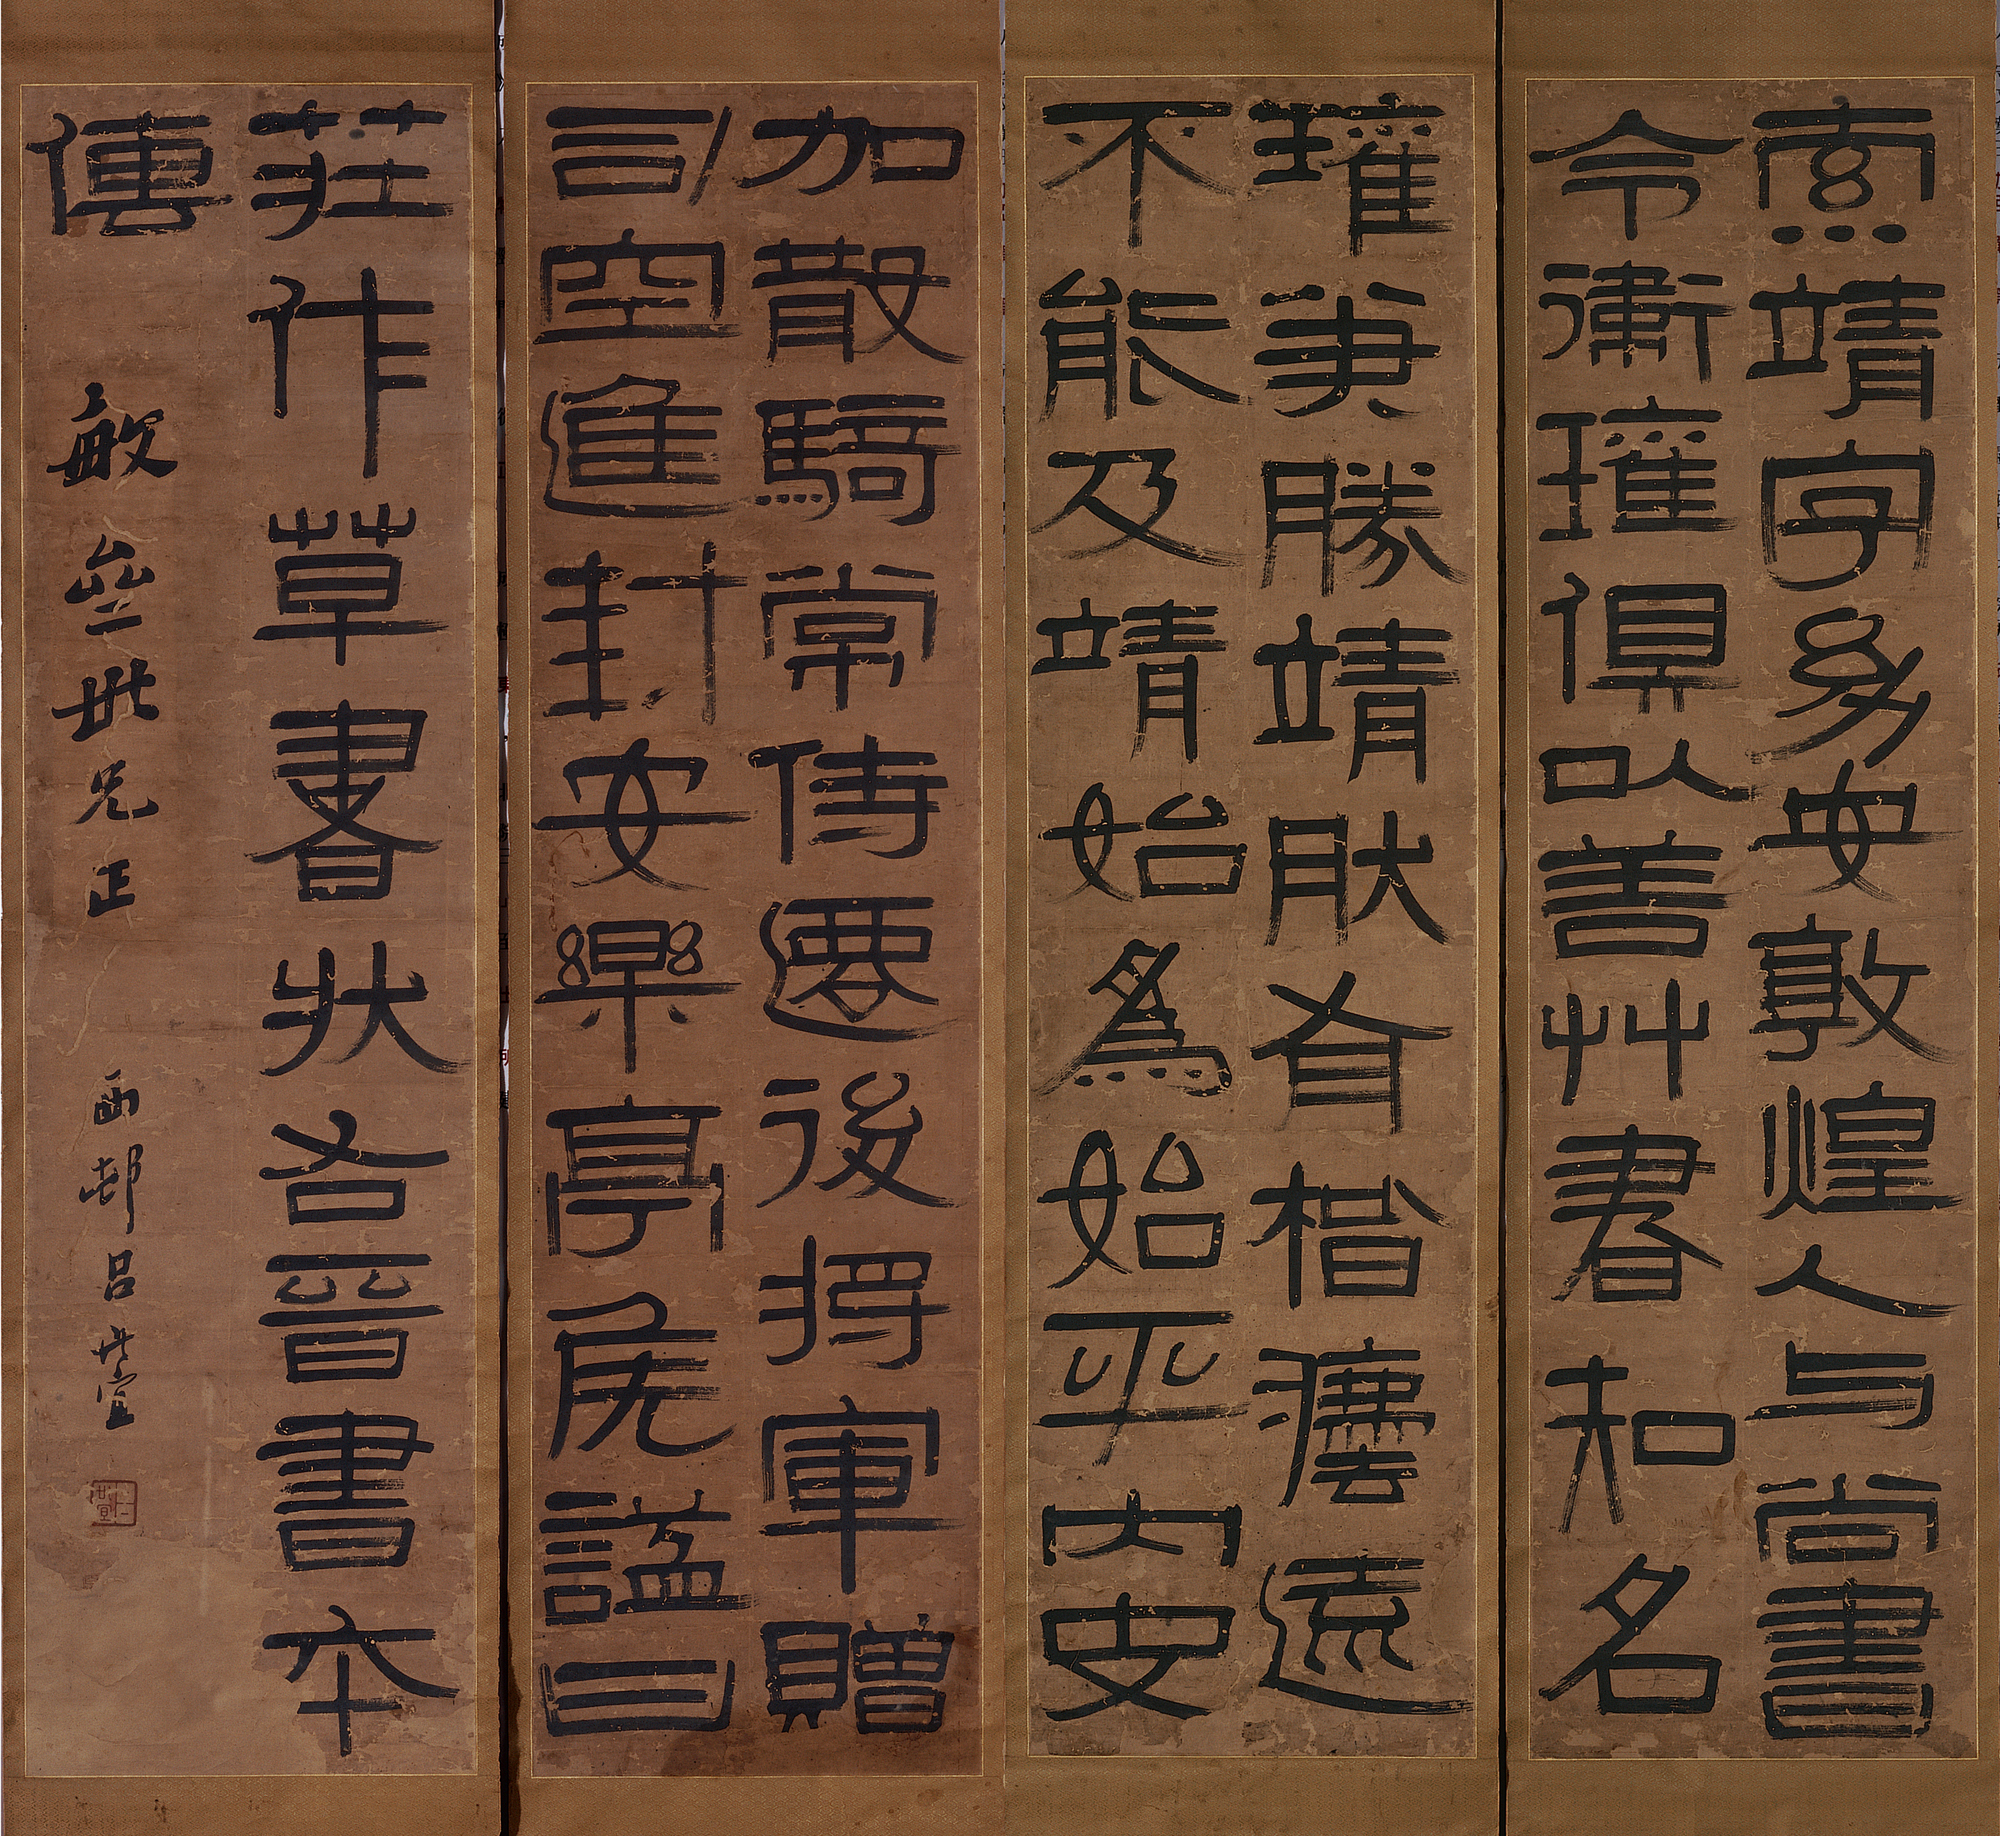 索靖字幼安敦煌人与尚書
令衛瓘俱以善艸書知名
瓘筆勝靖肰有楷灋遠
不能及靖始為始平內史
加散騎常侍遷後将軍贈
司空進封安樂亭侯諡曰
莊作草書狀右晉書本
傳
敏世兄正
西邨呂世宜